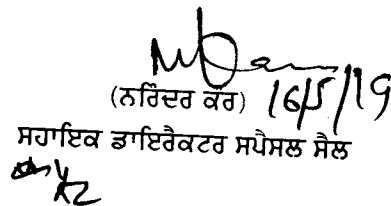 (ਨਰਿੰਦਰ ਕੌਰ) 16/5/19
ਸਹਾਇਕ ਡਾਇਰੈਕਟਰ ਸਪੈਸਲ ਸੈਲ